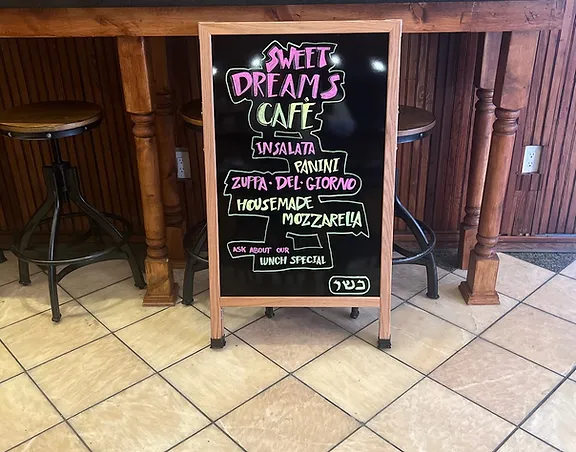 SWEET
DREAMS
CAFÉ
INSALATA
PANINI
ZUPPA · DEL · GIORNO
HOUSEMADE
MOZZARELLA
ASK ABOUT OUR
LUNCH SPECIAL
כשר